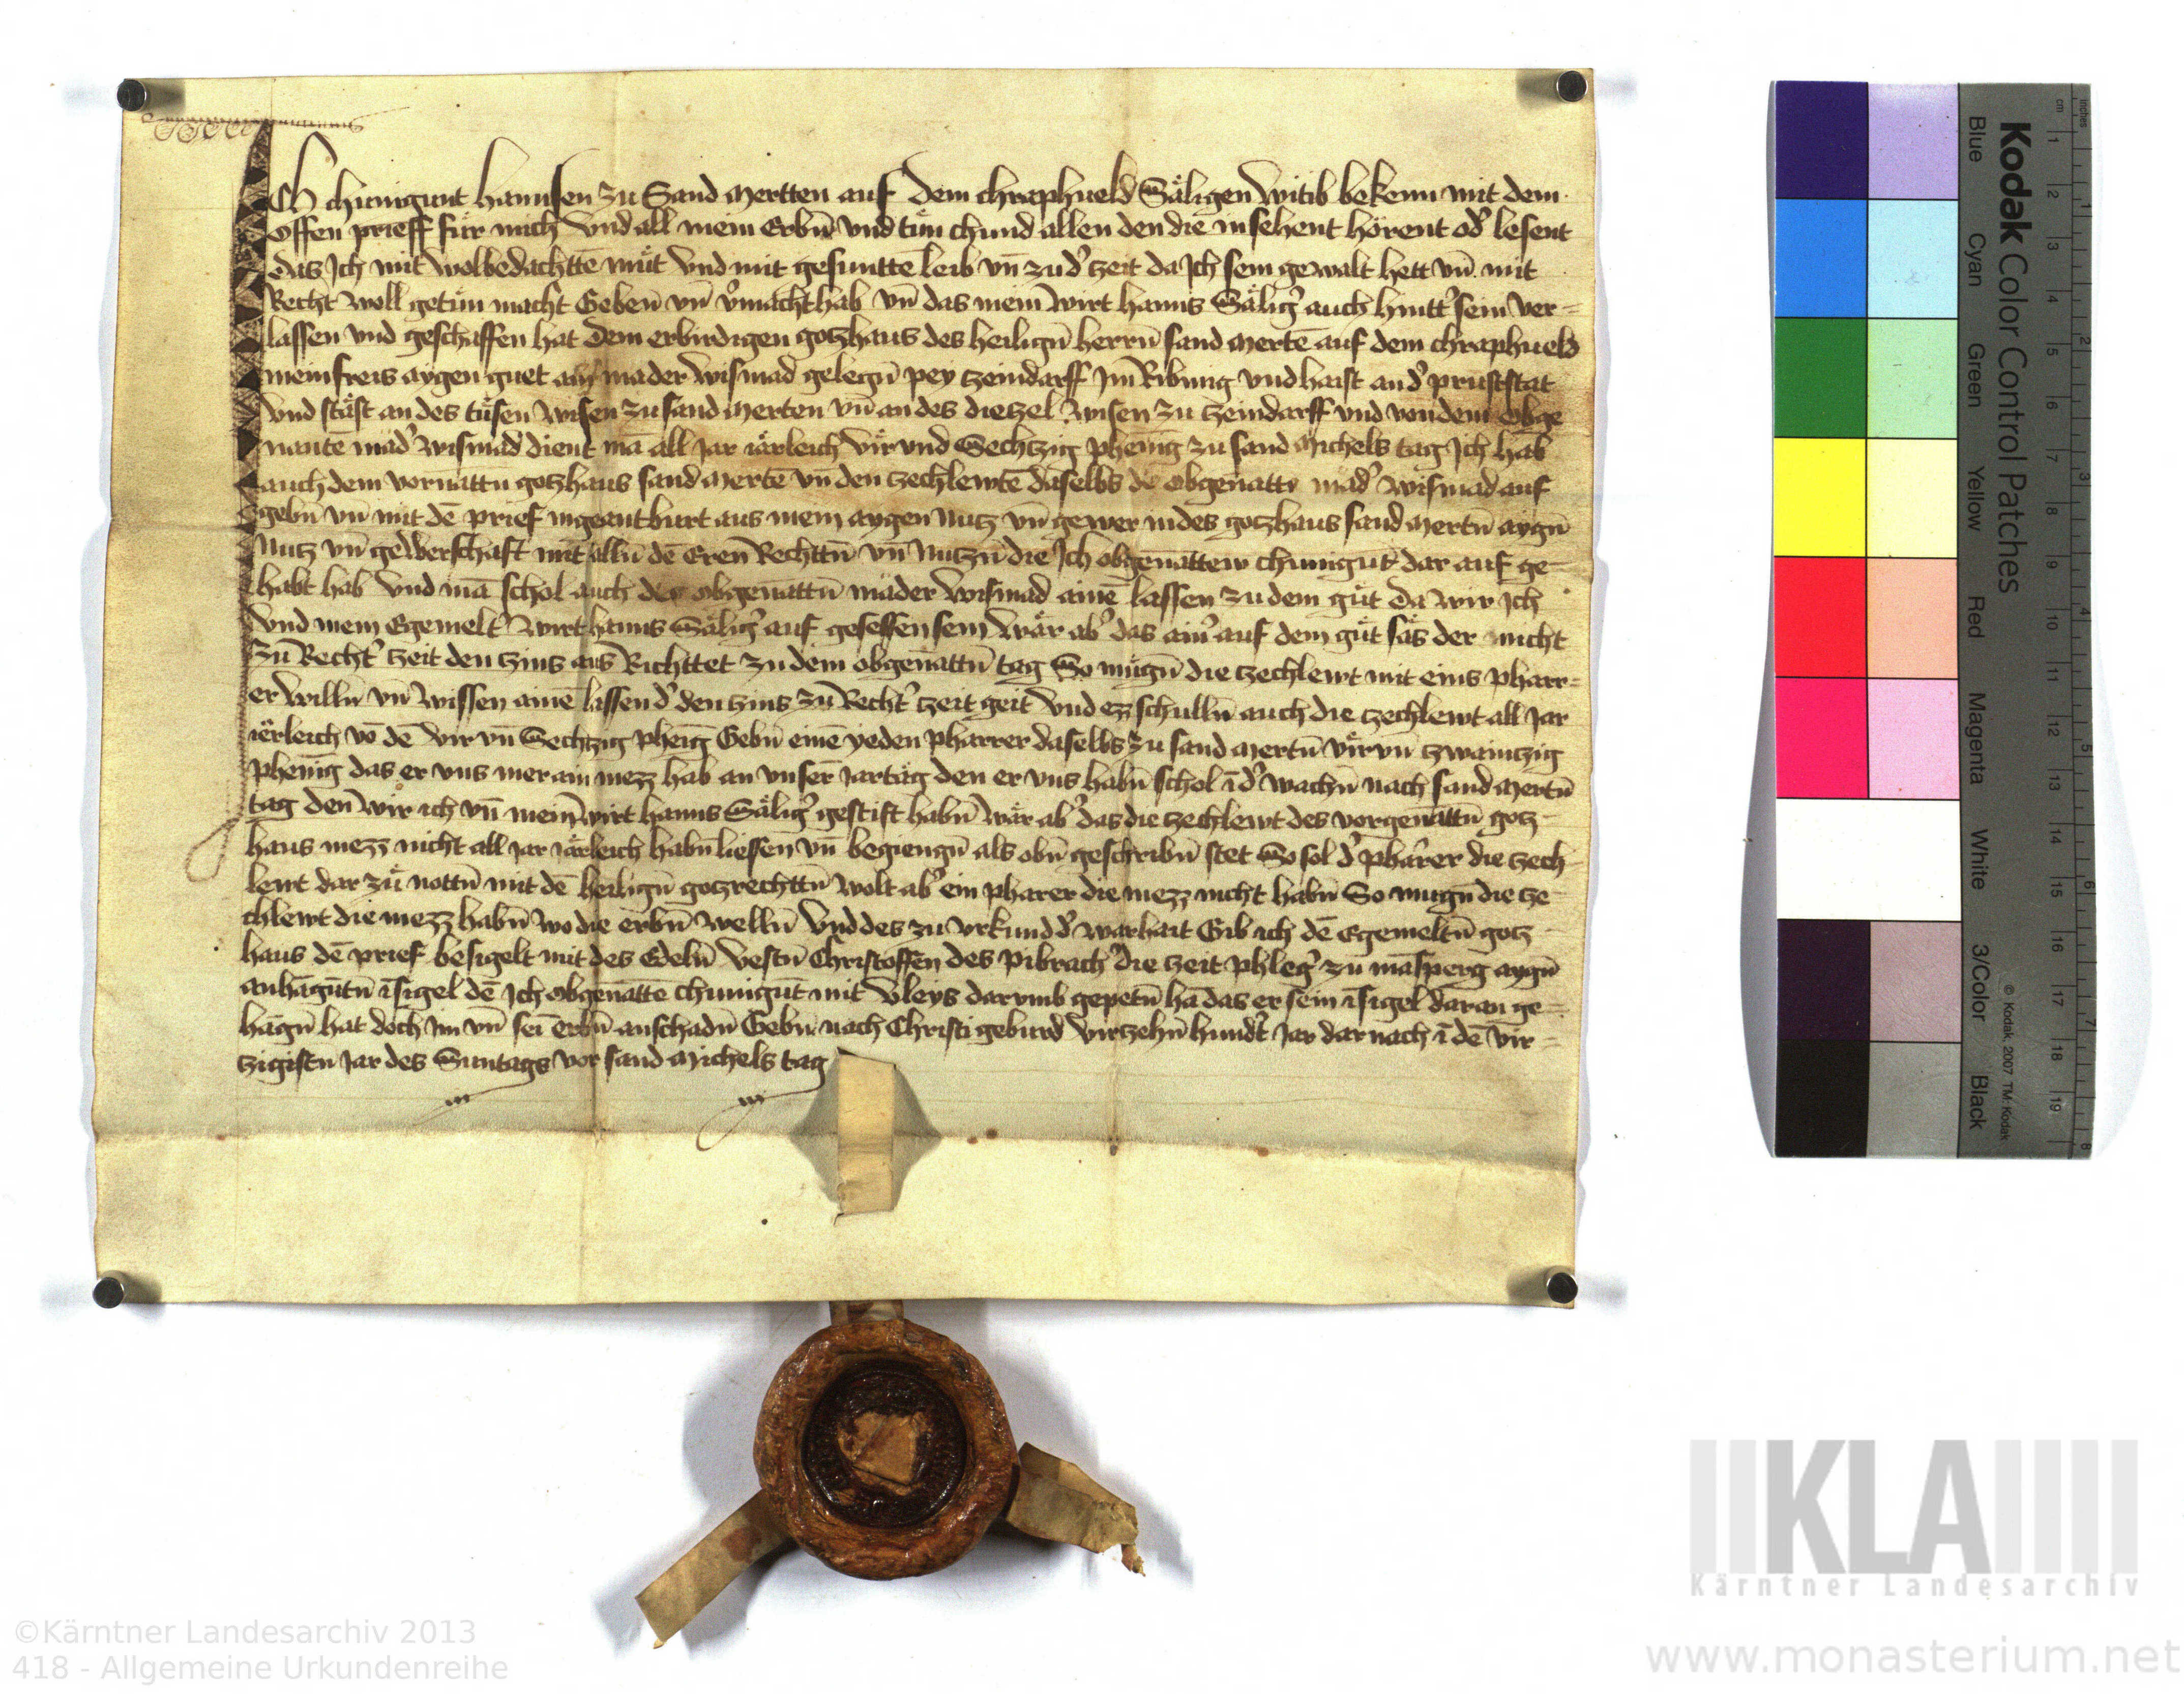 Ich chunigunt hannsen zu Sand mertten auf dem chraphueld Sa̎ligen witib bekenn mit dem
offen prieff für mich vnd all mein Erbn̄ vnd tu̎n chund allen den die in sehent hörent od' lesent
das Ich mit wolbedachttē mu̎t vnd mit gesunttē leib vn̄ zu d' zeit da Ich sein gewalt hett vn̄ mit
Recht woll getu̎n macht Gebn̄ vn̄ v'macht hab vn̄ das mein wirt hanns Sa̎lig' auch hintt' sein ver=
lassen vnd geschaffen hat dem erbirdigen gotzhaus des heilign̄ herrn̄ sand mertē auf dem chraphueld
mein freis aygen guet ain mader wismad gelegn̄ pey tzeindarff Im Ribing vnd haist an d' pruststat
vnd sta̎st an des tu̎sen wisen zu sand merten vn̄ an des dietzel wisen zu tzeindarff vnd von dem obge
nantē mad' wismad dient mā all Jar ia̎rleich vir vnd Sechtzig phenīg zu sand michels tag Ich hab
auch dem vornāttn gotzhaus sand mertē vn̄ den zechlewtē daselbs de obgenātt mad' wismad auf
gebn̄ vn̄ mit dē prief ingeantburt aus mein aygen Nutz vn̄ gewer in des gotzhaus sand mertn̄ aygn̄
Nutz vn̄ gewerschaft mit alln̄ dē Eren Rechttn̄ vn̄ Nutzn̄ die Ich obgenāttew chunigūt dar auf ge=
habt hab vnd mā schol auch des obgenāttn̄ mäder wismad ainē lassen zu dem gu̎t da wir Ich
vnd mein Egemelt' wirt hanns Sa̎lig' auf gesessen sein wa̎r ab' das ain' auf dem gu̎t sa̎s der nicht
zu Recht' zeit den zins aus Richttet zu dem obgenāttn̄ tag So mu̎gn̄ die zechlewt mit eins pharr=
er willn̄ vn̄ wissen ainē lassen d' den zins zu Recht' zeit geit vnd ez schulln̄ auch die zechlewt all Jar
ierleich vō dē vir vn̄ Sechtzig phenīg Gebn̄ einē yeden pharrer daselbs zu sand mertn̄ vir vn̄ tzwaintzig
phenīg das er vns mer ain mezz hab an vnserē Jartag den er vns habn̄ schol ī d' wachn̄ nach sand mertn̄
tag den wir ich vn̄ mein wirt hanns Sa̎lig' gestift habn̄ wa̎r ab' das die zechlewt des vorgenāttn̄ gotz
haus mezz nicht all Jar ia̎rleich habn̄ liessen vn̄ begiengn̄ als obn̄ geschribn̄ stet So sol d' pharrer die zech
lewt dar zu̎ nottn̄ mit dē heilign̄ gotzrechttn̄ wolt ab' ein pharer die mezz nicht habn̄ So mugn̄ die ze
chlewt die mezz habn̄ wo die erbn̄ welln̄ vnd des zu vrkund d' warhait Gib ich dē Egemeltn̄ gotz
haus dē prief besigelt mit des Edeln̄ vestn̄ Christoffen des pibrach' die zeit phleg' zu māsperg aygn̄
anhāgūtn̄ īsigel dē Ich obgenāttē chunigūt mit vleys darumb gepetn̄ hā das er sein īsigel daran ge=
hāgn̄ hat doch im vn̄ sei erbn̄ anschadn̄ Gebn̄ nach Christi geburd virtzehn̄ hund't Jar dar nach ī dē vir=
zigistn̄ Jar des Suntags vor sand michels tag
Kodak Color Control Patches
Blue Cyan Green Yellow Red Magenta White 3/Color Black
© Kodak, 2007 TM: Kodak
cm 1 2 3 4 5 6 7 8 9 10 11 12 13 14 15 16 17 18 19
inches 1 2 3 4 5 6 7 8
KLA
Kärntner Landesarchiv
©Kärntner Landesarchiv 2013
418 - Allgemeine Urkundenreihe
www.monasterium.net